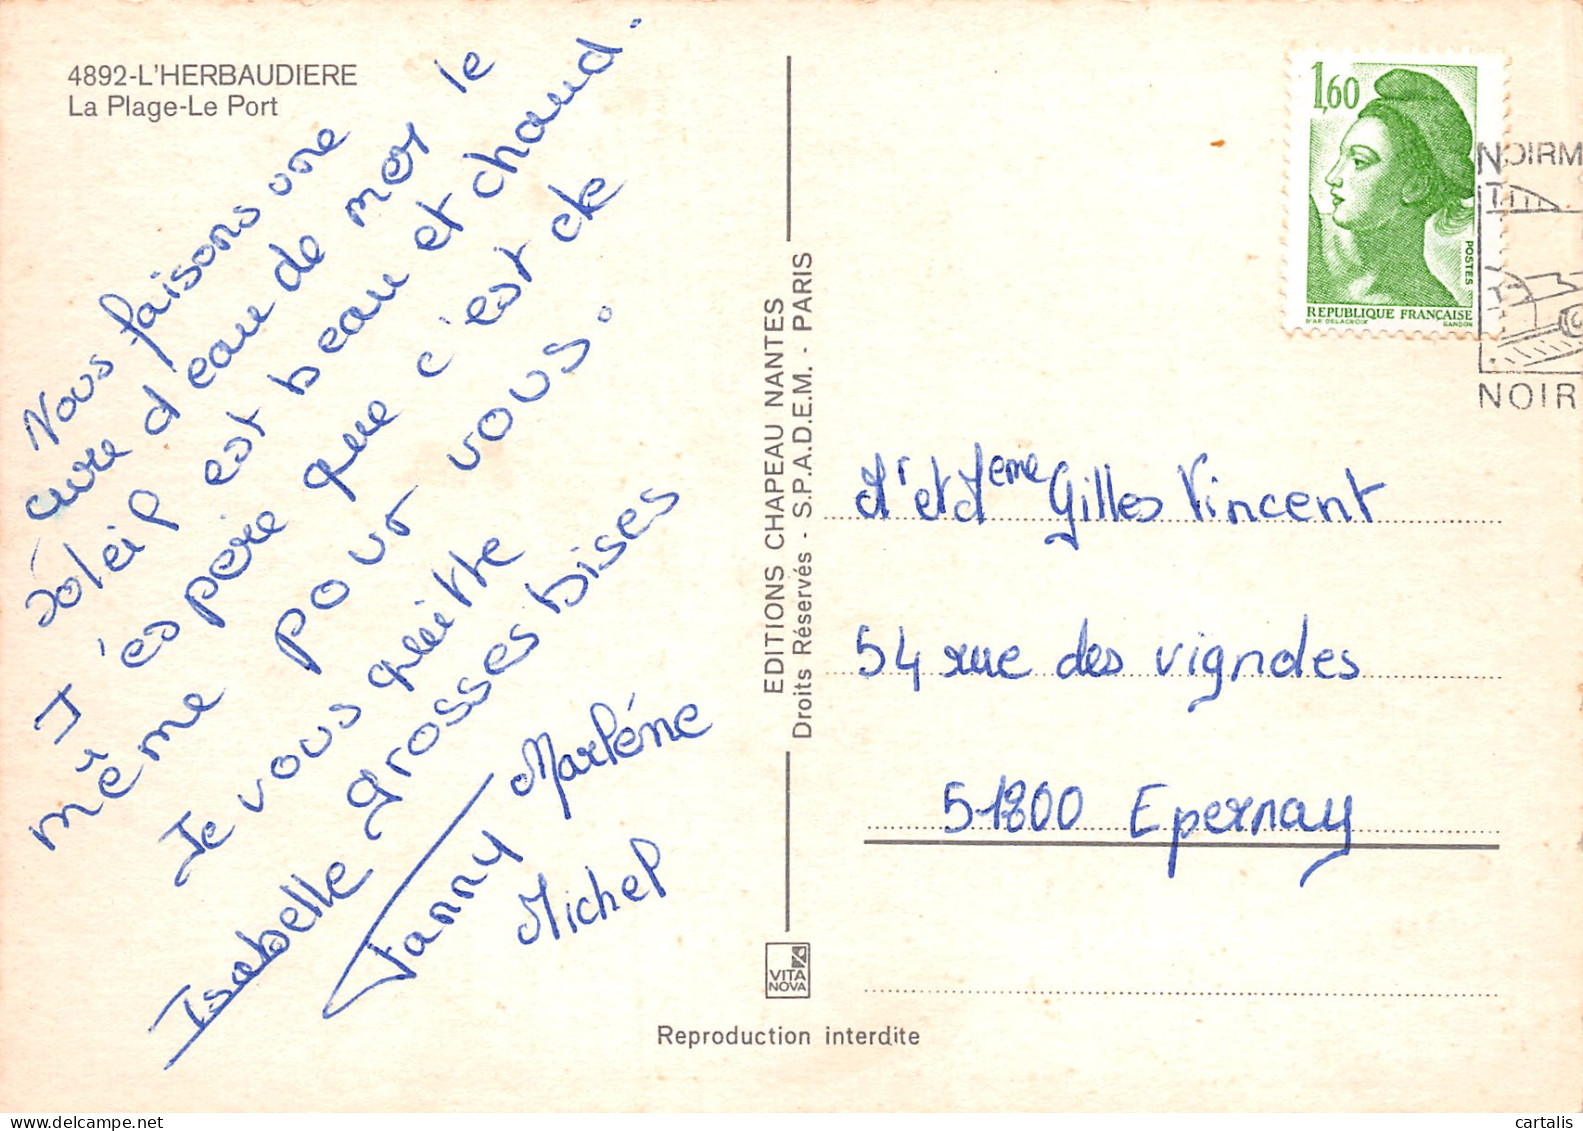 4892-L'HERBAUDIERE
La Plage-Le Port
Nous faisons une
cure d'eau de mer le
soleil est beau et chaud.
J'espère que c'est de
même pour vous.
Je vous quitte
grosses bises
Isabelle
Fanny
Marlène
Michel
EDITIONS CHAPEAU NANTES
Droits Réservés - S.P.A.D.E.M. - PARIS
VITA
NOVA
Reproduction interdite
1,60
POSTES
REPUBLIQUE FRANÇAISE
D'AP. DELACROIX GANDON
NOIRM
NOIR
Mr et Meme Gilles Vincent
54 rue des vignoles
51800 Epernay
cartalis